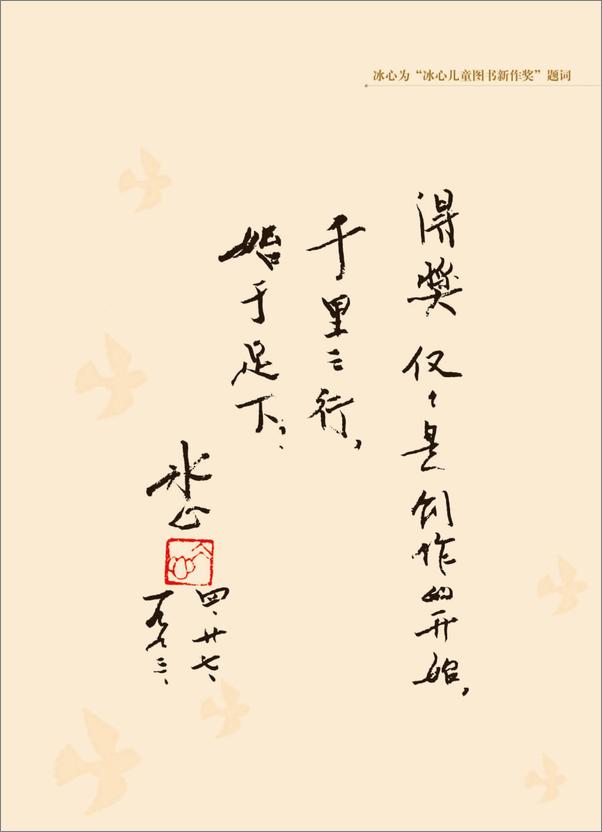 冰心为“冰心儿童图书新作奖”题词
得奖仅々是创作的开始,
千里之行,
始于足下.
冰心
四、廿七、
一九九三、